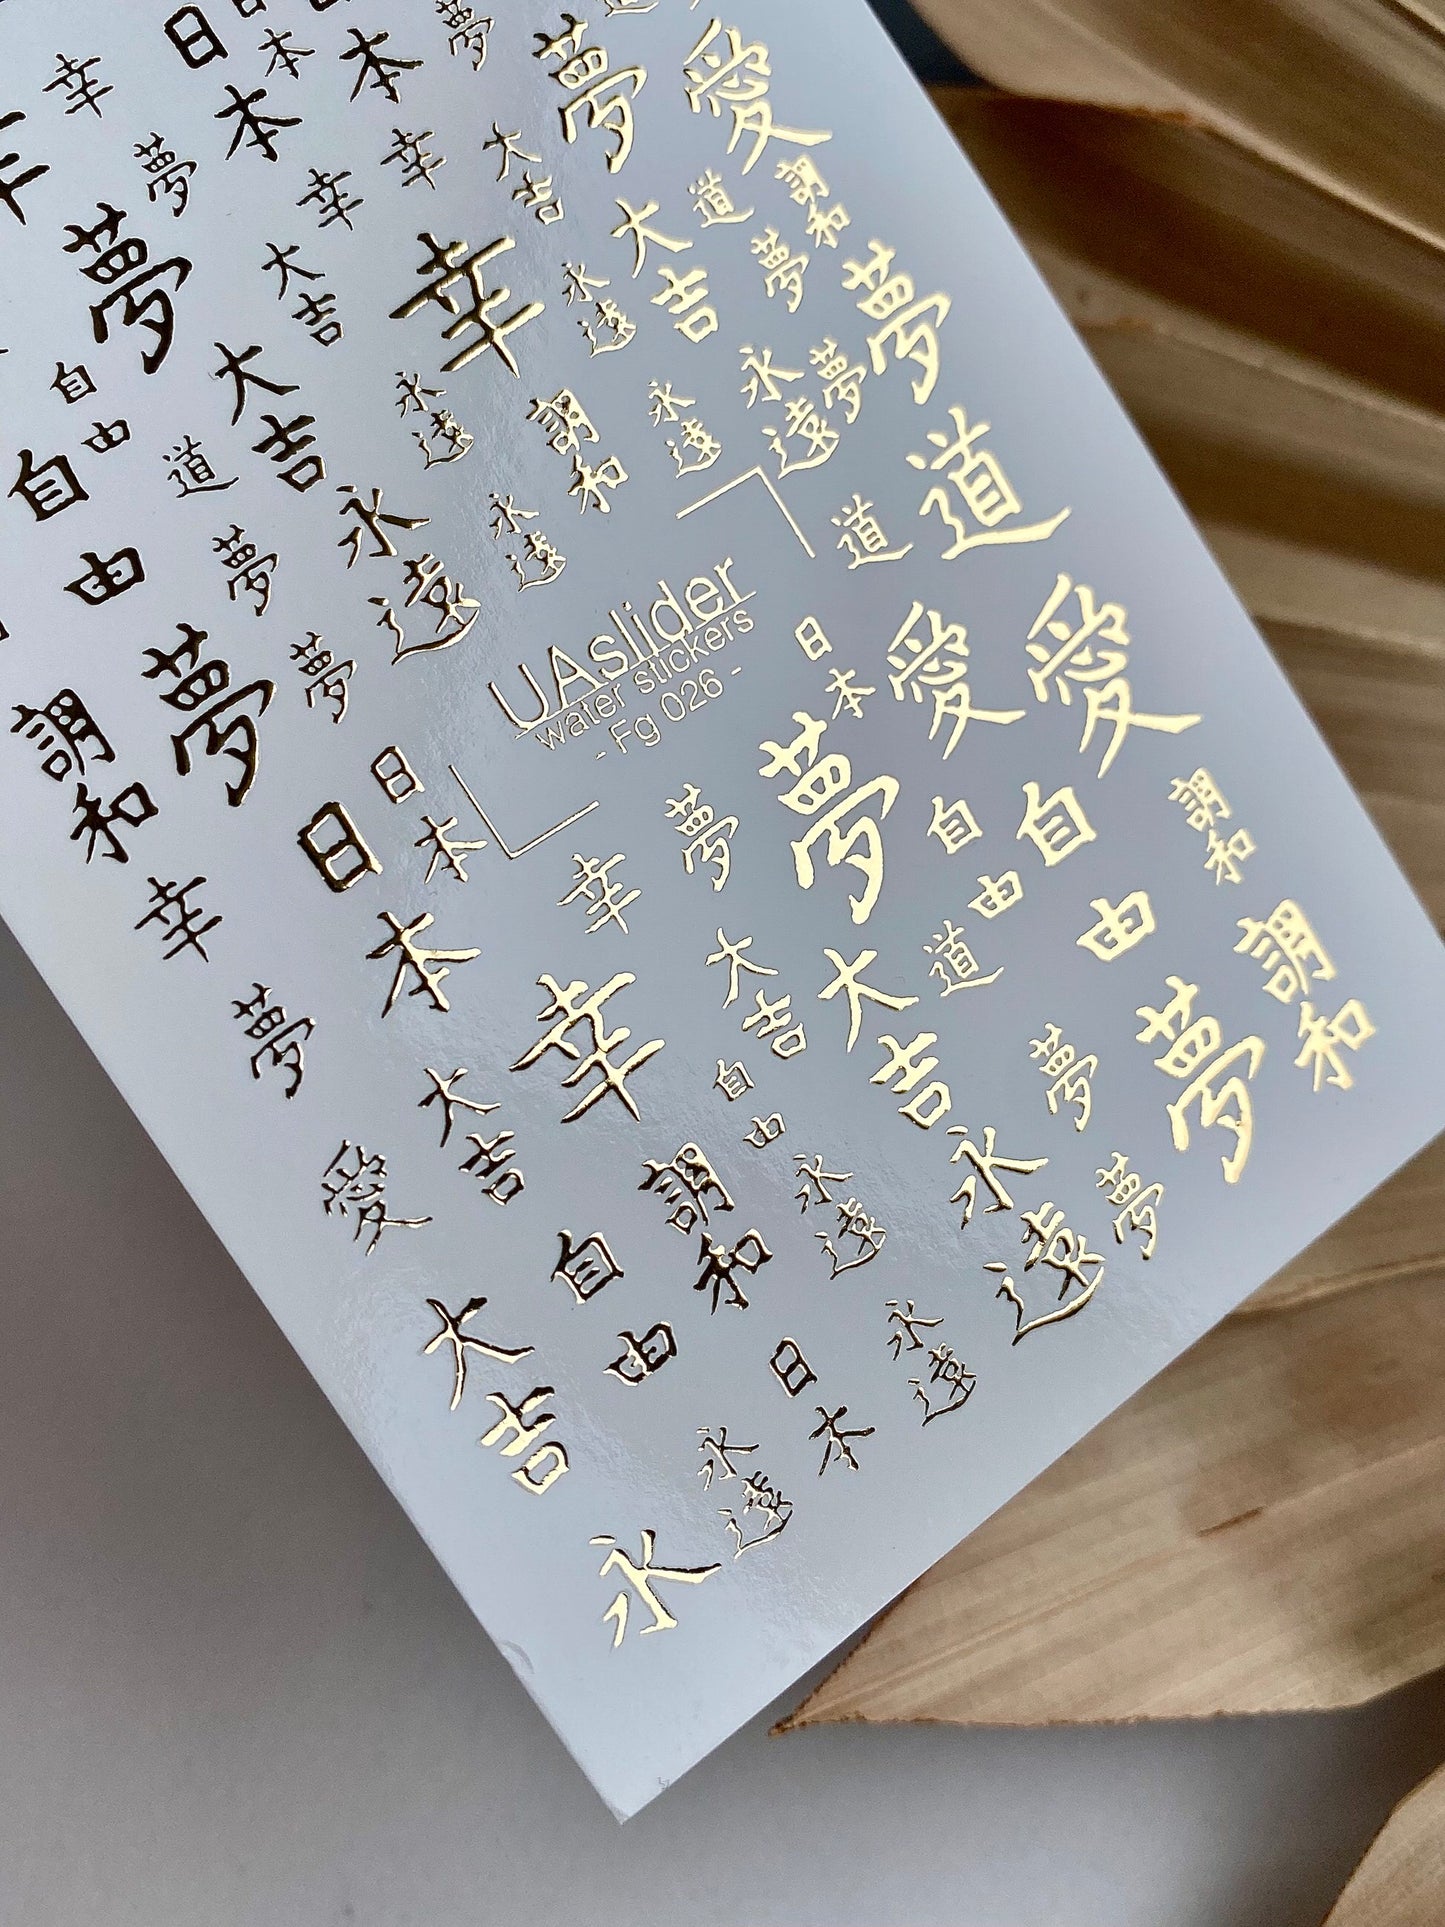 幸
日本
日本
本
夢
夢
愛
幸
夢
幸
幸
大吉
夢
大吉
幸
永遠
大吉
道
調和
夢
夢
自由
大吉
永遠
調和
永遠
永遠
夢
自由
道
永遠
永遠
道
道
由
夢
夢
UAslider
water stickers
- Fg 026 -
日本
愛
愛
調和
夢
日本
日本
夢
夢
自由
自由
調和
幸
幸
大吉
大吉
道
調和
夢
幸
自由
夢
夢
大吉
調和
永遠
永遠
夢
愛
自由
大吉
日本
永遠
永遠
永